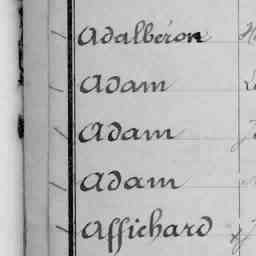 Adalbéron
Adam
Adam
Adam
Affichard